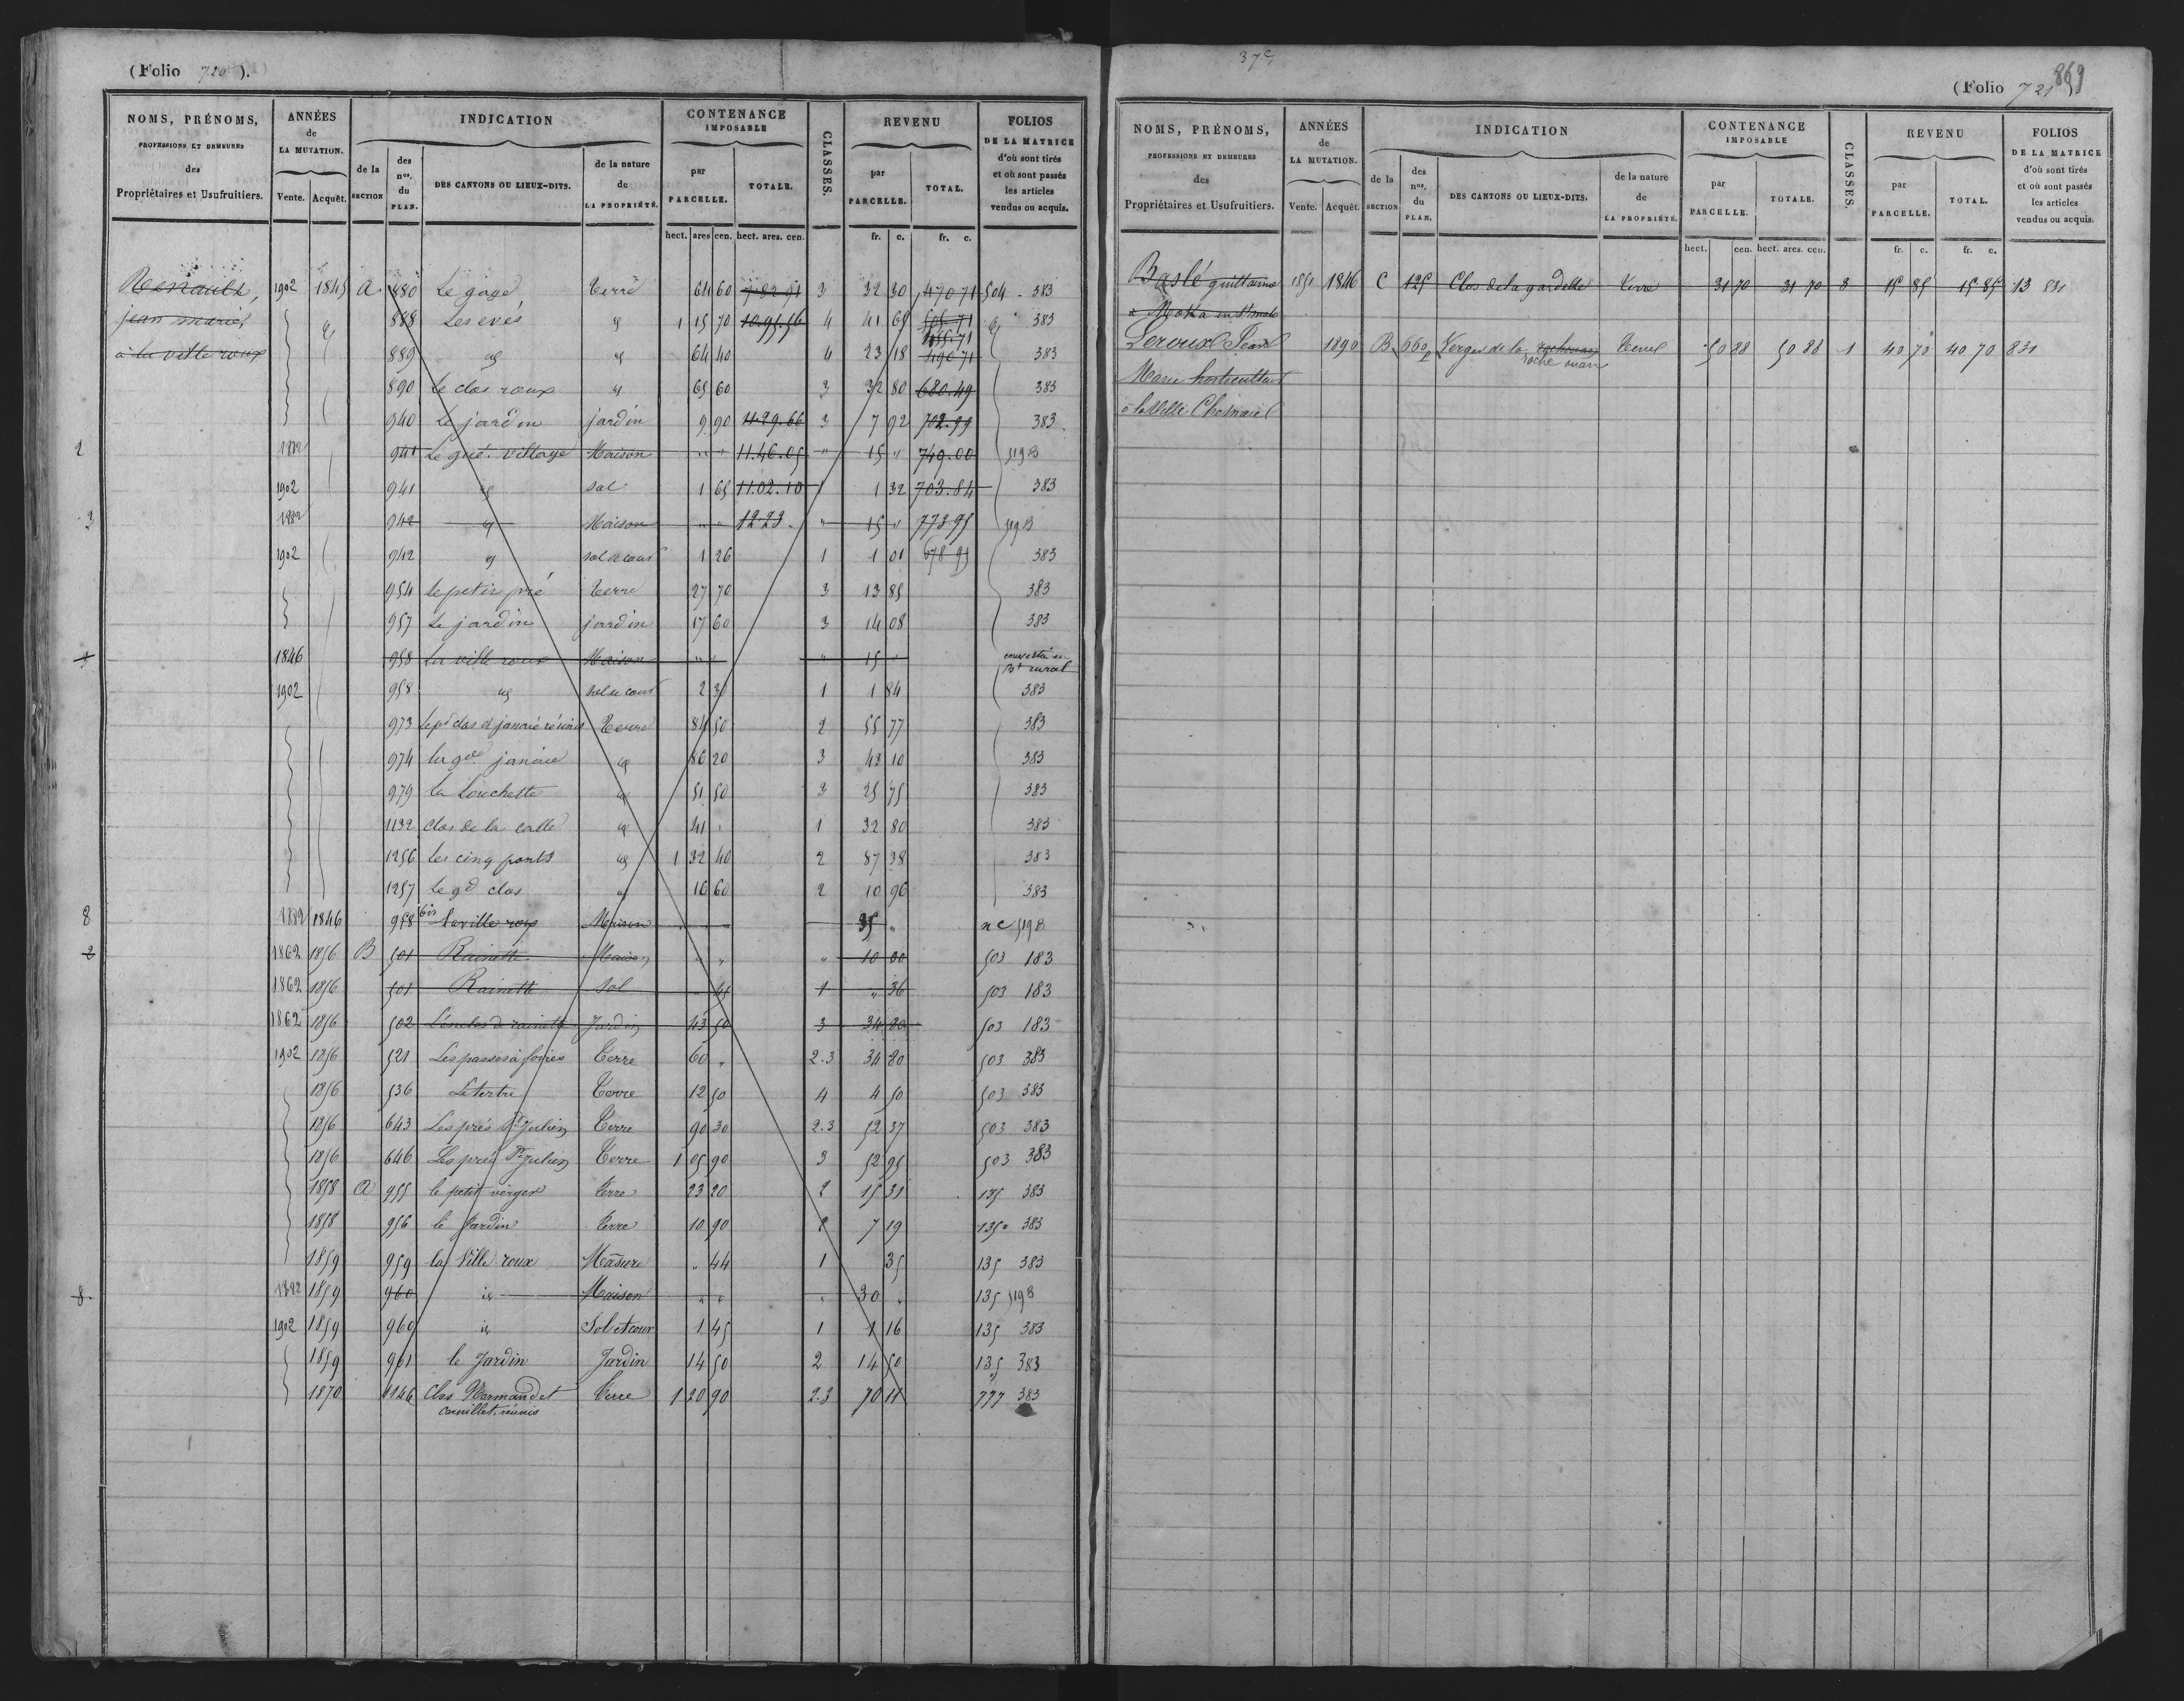 (Folio 720 ).
NOMS, PRÉNOMS, PROFESSIONS ET DEMEURES des Propriétaires et Usufruitiers.
ANNÉES de LA MUTATION. Vente. Acquêt.
INDICATION de la SECTION des nos. du PLAN. DES CANTONS OU LIEUX-DITS. de la nature de LA PROPRIÉTÉ.
CONTENANCE IMPOSABLE par PARCELLE. TOTALE.
CLASSES.
REVENU par PARCELLE. TOTAL.
FOLIOS DE LA MATRICE d'où sont tirés et où sont passés les articles vendus ou acquis.
hect. ares cen. hect. ares. cen. fr. c. fr. c.
Renault, 1902 1845 A 880 Le gage Terre 64 60 7.82.91 3 32 30 470 71 504 - 383
jean marie, 888 Les eves id 1 15 70 10.95.56 4 41 65 383
à la ville roux 889 id id 64 40 4 23 18 490 71 383
890 Le clos roux id 65 60 3 32 80 680.49 383
940 Le jardin jardin 9 90 11.29.66 3 7 92 702.99 383
1 1882 941 Le gué village Maison " " 11.46.05 " 15 " 749.00 519 B
1902 941 id sol 1 65 11.02.10 1 1 32 703.84 383
3 1882 942 id Maison " " 12.23 " 15 " 773 95 519 B
1902 942 id sol et cour 1 26 1 1 01 678 95 383
954 le petit pré Terre 27 70 3 13 85 383
957 Le jardin jardin 17 60 3 14 08 383
1846 958 La ville roux Maison " " " 15 " convertie en Bt rural
1902 958 id sol et cour 2 30 1 1 84 383
973 le pt clos et janaie réunis Terre 84 50 2 55 77 383
974 la gde janaie id 86 20 3 43 10 383
979 la Touchette id 51 50 3 25 75 383
1132 clos de la calle id 41 " 1 32 80 383
1256 Les cinq ponts id 1 32 40 2 87 38 383
1257 le gd clos id 16 60 2 10 96 383
8 1882 1846 958 bis la ville roux Maison 35 " nc 519 B
2 1862 1856 B 501 Rainette Maison " " " 10 00 503 183
1862 1856 501 Rainette Sol 45 1 " 36 503 183
1862 1856 502 Jardin 43 50 3 34 80 503 183
1902 1856 521 Terre 60 " 2.3 34 80 503 383
1856 536 Le tertre Terre 12 50 4 4 50 503 383
1856 643 Les prés St Julien Terre 90 30 2.3 52 37 503 383
1856 646 Les prés St Julien Terre 1 05 90 3 52 95 503 383
1858 A 955 le petit verger Terre 23 20 2 15 31 135 383
1858 956 le Jardin Terre 10 90 2 7 19 135 383
1859 959 la Ville roux Masure " 44 1 35 135 383
8 1882 1859 960 id Maison " " " 30 " 135 519 B
1902 1859 960 id Sol et cour 1 45 1 1 16 135 383
1859 961 le Jardin Jardin 14 50 2 14 50 135 383
1870 1146 Clos Normand et Terre 1 20 90 2.3 70 11 777 383
cornillet réunis
37e
859
(Folio 721 ).
NOMS, PRÉNOMS, PROFESSIONS ET DEMEURES des Propriétaires et Usufruitiers.
ANNÉES de LA MUTATION. Vente. Acquêt.
INDICATION de la SECTION des nos. du PLAN. DES CANTONS OU LIEUX-DITS. de la nature de LA PROPRIÉTÉ.
CONTENANCE IMPOSABLE par PARCELLE. TOTALE.
CLASSES.
REVENU par PARCELLE. TOTAL.
FOLIOS DE LA MATRICE d'où sont tirés et où sont passés les articles vendus ou acquis.
hect. cen. hect. ares. cen. fr. c. fr. c.
Baslé guillaume 1851 1846 C 125 Clos de la gardelle Terre 31 70 31 70 3 15 85 15 85 13 831
à Moka en St malo
Leroux Jean 1890 B 660 p Verger de la roche ouan Terre 50 88 50 88 1 40 70 40 70 831
Marie horticulteur
à la Ville Chesnaie